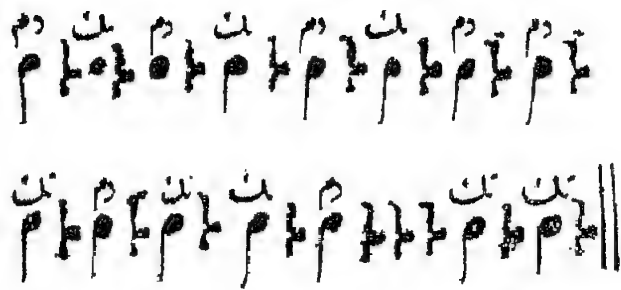 دم تك دم تك دم تك دم دم
تك دم تك تك دم تك تك